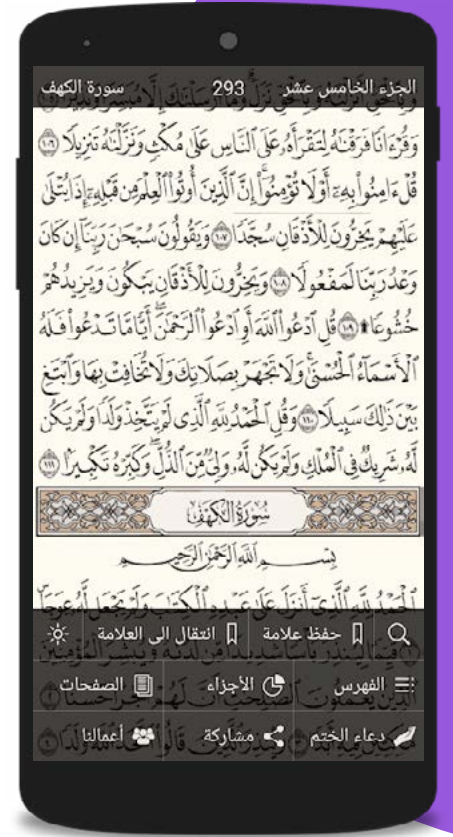 الجزء الخامس عشر 293 سورة الكهف
وَبِٱلْحَقِّ أَنزَلْنَٰهُ وَبِٱلْحَقِّ نَزَلَ وَمَآ أَرْسَلْنَٰكَ إِلَّا مُبَشِّرًا وَنَذِيرًا ١٠٥
وَقُرْءَانًا فَرَقْنَٰهُ لِتَقْرَأَهُۥ عَلَى ٱلنَّاسِ عَلَىٰ مُكْثٍ وَنَزَّلْنَٰهُ تَنزِيلًا ١٠٦
قُلْ ءَامِنُوا۟ بِهِۦٓ أَوْ لَا تُؤْمِنُوٓا۟ إِنَّ ٱلَّذِينَ أُوتُوا۟ ٱلْعِلْمَ مِن قَبْلِهِۦٓ إِذَا يُتْلَىٰ
عَلَيْهِمْ يَخِرُّونَ لِلْأَذْقَانِ سُجَّدًا ١٠٧ وَيَقُولُونَ سُبْحَٰنَ رَبِّنَآ إِن كَانَ
وَعْدُ رَبِّنَا لَمَفْعُولًا ١٠٨ وَيَخِرُّونَ لِلْأَذْقَانِ يَبْكُونَ وَيَزِيدُهُمْ
خُشُوعًا ۩ ١٠٩ قُلِ ٱدْعُوا۟ ٱللَّهَ أَوِ ٱدْعُوا۟ ٱلرَّحْمَٰنَ أَيًّا مَّا تَدْعُوا۟ فَلَهُ
ٱلْأَسْمَآءُ ٱلْحُسْنَىٰ وَلَا تَجْهَرْ بِصَلَاتِكَ وَلَا تُخَافِتْ بِهَا وَٱبْتَغِ
بَيْنَ ذَٰلِكَ سَبِيلًا ١١٠ وَقُلِ ٱلْحَمْدُ لِلَّهِ ٱلَّذِى لَمْ يَتَّخِذْ وَلَدًا وَلَمْ يَكُن
لَّهُۥ شَرِيكٌ فِى ٱلْمُلْكِ وَلَمْ يَكُن لَّهُۥ وَلِىٌّ مِّنَ ٱلذُّلِّ وَكَبِّرْهُ تَكْبِيرًا ١١١
سُورَةُ الكَهْفِ
بِسْمِ ٱللَّهِ ٱلرَّحْمَٰنِ ٱلرَّحِيمِ
ٱلْحَمْدُ لِلَّهِ ٱلَّذِىٓ أَنزَلَ عَلَىٰ عَبْدِهِ ٱلْكِتَٰبَ وَلَمْ يَجْعَل لَّهُۥ عِوَجَا
حفظ علامة انتقال الى العلامة
الفهرس الأجزاء الصفحات
دعاء الختم مشاركة أعمالنا